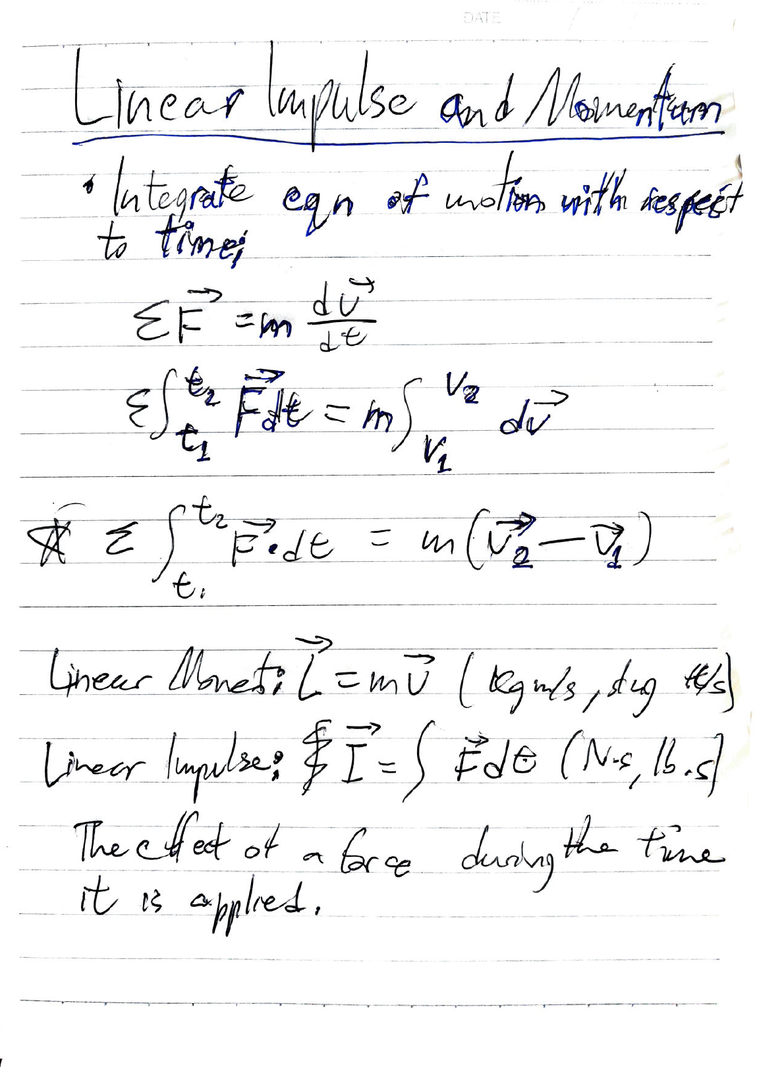 DATE
Linear Impulse and Momentum
• Integrate eqn of motion with respect
to time;
ΣF⃗ = m dv⃗/dt
Σ∫_{t₁}^{t₂} F⃗dt = m∫_{V₁}^{V₂} dv⃗
☆ Σ ∫_{t₁}^{t₂} F⃗•dt = m(v⃗₂ — v⃗₁)
Linear Moment: L⃗ = mv⃗ (kg m/s, slug ft/s)
Linear Impulse: I⃗ = ∫ F⃗dt (N·s, lb.s)
The effect of a force during the time
it is applied.